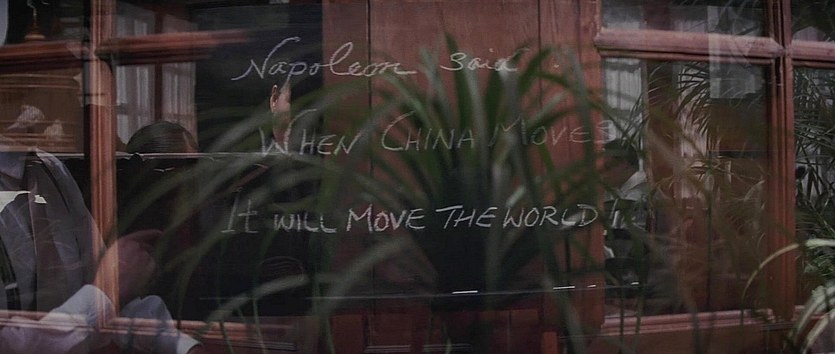 Napoleon said
WHEN CHINA MOVES
It WILL MOVE THE WORLD!